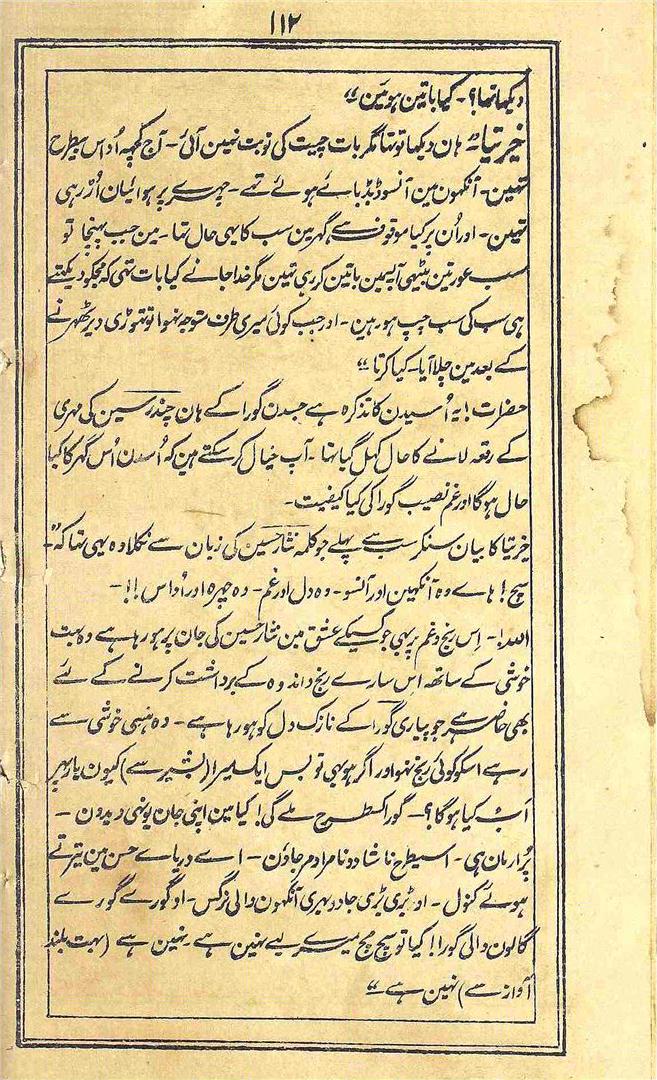 ۱۱۲
دیکھا تھا؟ ۔ کیا باتین ہوئین"
خیرتیا" ہان دیکھا تو تھا مگر بات چیت کی نوبت نہین آئی ۔ آج کچھہ اُداس سیطرح
تہین۔ آنکھون مین آنسو ڈبڈبائے ہوئے تہے ۔ چہرے پر ہوائیان اُڑ رہی
تہین ۔ اور اُن پر کیا موقوف ہے گہر مین سب کا یہی حال تہا ۔ مین جب پہنچا تو
سب عورتین بیٹہی آپسمین باتین کر رہی تہین مگر خدا جانے کیا بات تہی کہ مجکو دیکھتے
ہی سب کی سب چپ ہو رہین ۔ اور جب کوئی میری طرف متوجہ نہوا تو تہوڑی دیر ٹھہرنے
کے بعد مین چلا آیا ۔ کیا کرتا"
حضرات! یہ اُسیدن کا تذکرہ ہے جسدن گورا کے ہان چندر سین کی مہری
کے رقعہ لانے کا حال کہل گیا تہا ۔ آپ خیال کر سکتے ہین کہ اُسدن اُس گہر کا کیا
حال ہوگا اور غم نصیب گورا کی کیا کیفیت ۔
خیرتیا کا بیان سنکر سب سے پہلے جو کلمہ نثار حسین کی زبان سے نکلا وہ یہی تہا کہ"۔
سچ! ہاے وہ آنکہین اور آنسو ۔ وہ دل اور غم ۔ وہ چہرہ اور اُداس!! ۔
اللہ! ۔ اِس رنج و غم پر بہی جو کسیکے عشق مین نثار حسین کی جان پر ہو رہا ہے وہ بہت
خوشی کے ساتھہ اس سارے رنج و اندوہ کے برداشت کرنے کے لئے
بھی حاضر ہے جو پیاری گورا کے نازک دل کو ہو رہا ہے ۔ وہ ہنسی خوشی سے
رہے اسکو کوئی رنج نہو اور اگر ہو بہی تو بس ایک میرا (بشیر سے) کیون یار پہر
اَب کیا ہوگا؟ ۔ گورا کسطرح ملے گی! کیا مین اپنی جان یونہی دیدون ۔
پُر ارمان ہی ۔ اسیطرح ناشاد و نامراد مر جاؤن ۔ اے دریاے حسن مین تیرتے
ہوئے کنول ۔ او بڑی بڑی جادو بہری آنکھون والی نرگس ۔ او گورے گورے
گالون والی گورا! کیا تو سچ مچ میرے لیے نہین ہے ۔ نہین ہے (بہت بلند
آواز سے) نہین ہے"